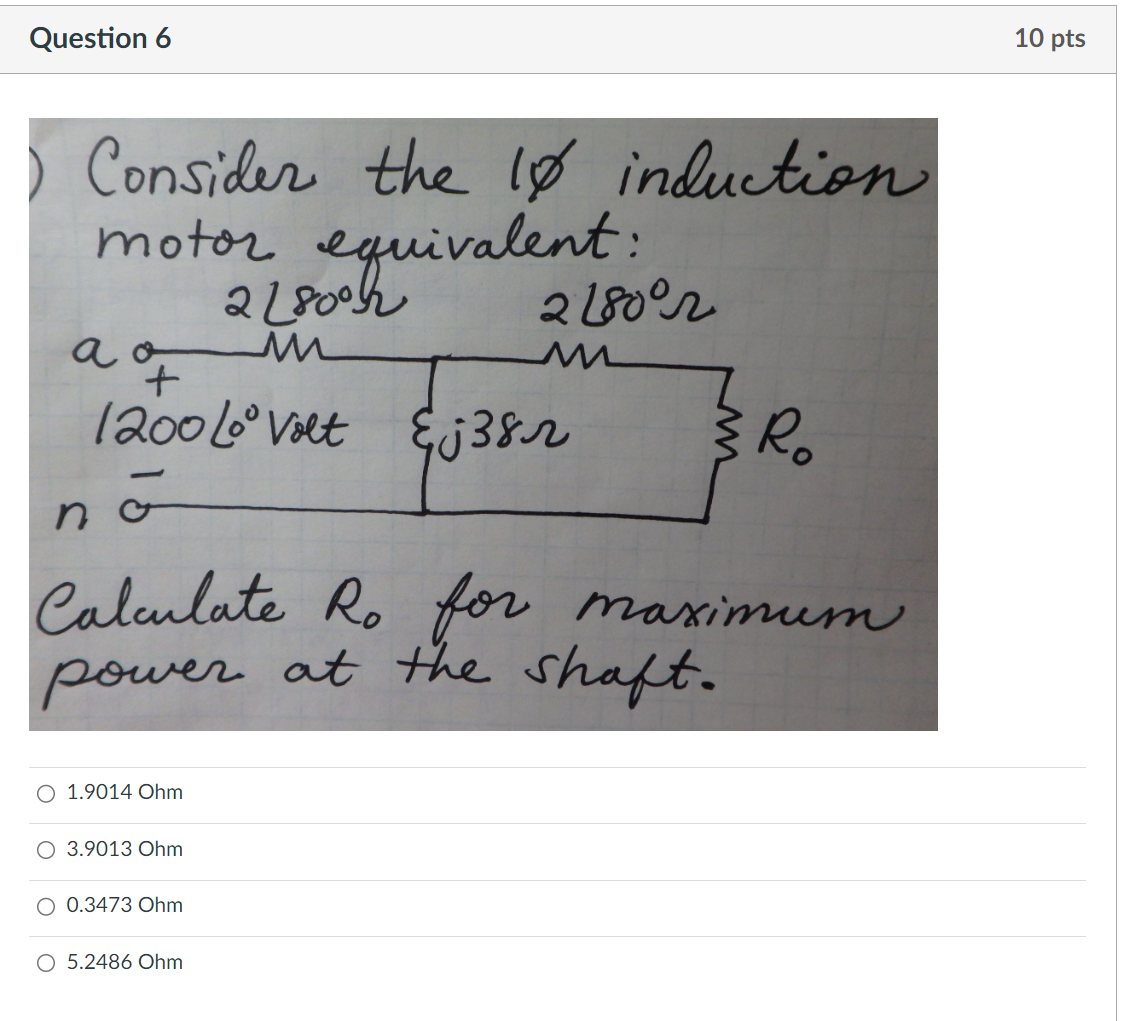 Question 6
10 pts
) Consider the 1ø induction
motor equivalent:
2∠80°Ω 2∠80°Ω
a +
1200∠0° Volt j38Ω R₀
−
n
Calculate R₀ for maximum
power at the shaft.
1.9014 Ohm
3.9013 Ohm
0.3473 Ohm
5.2486 Ohm